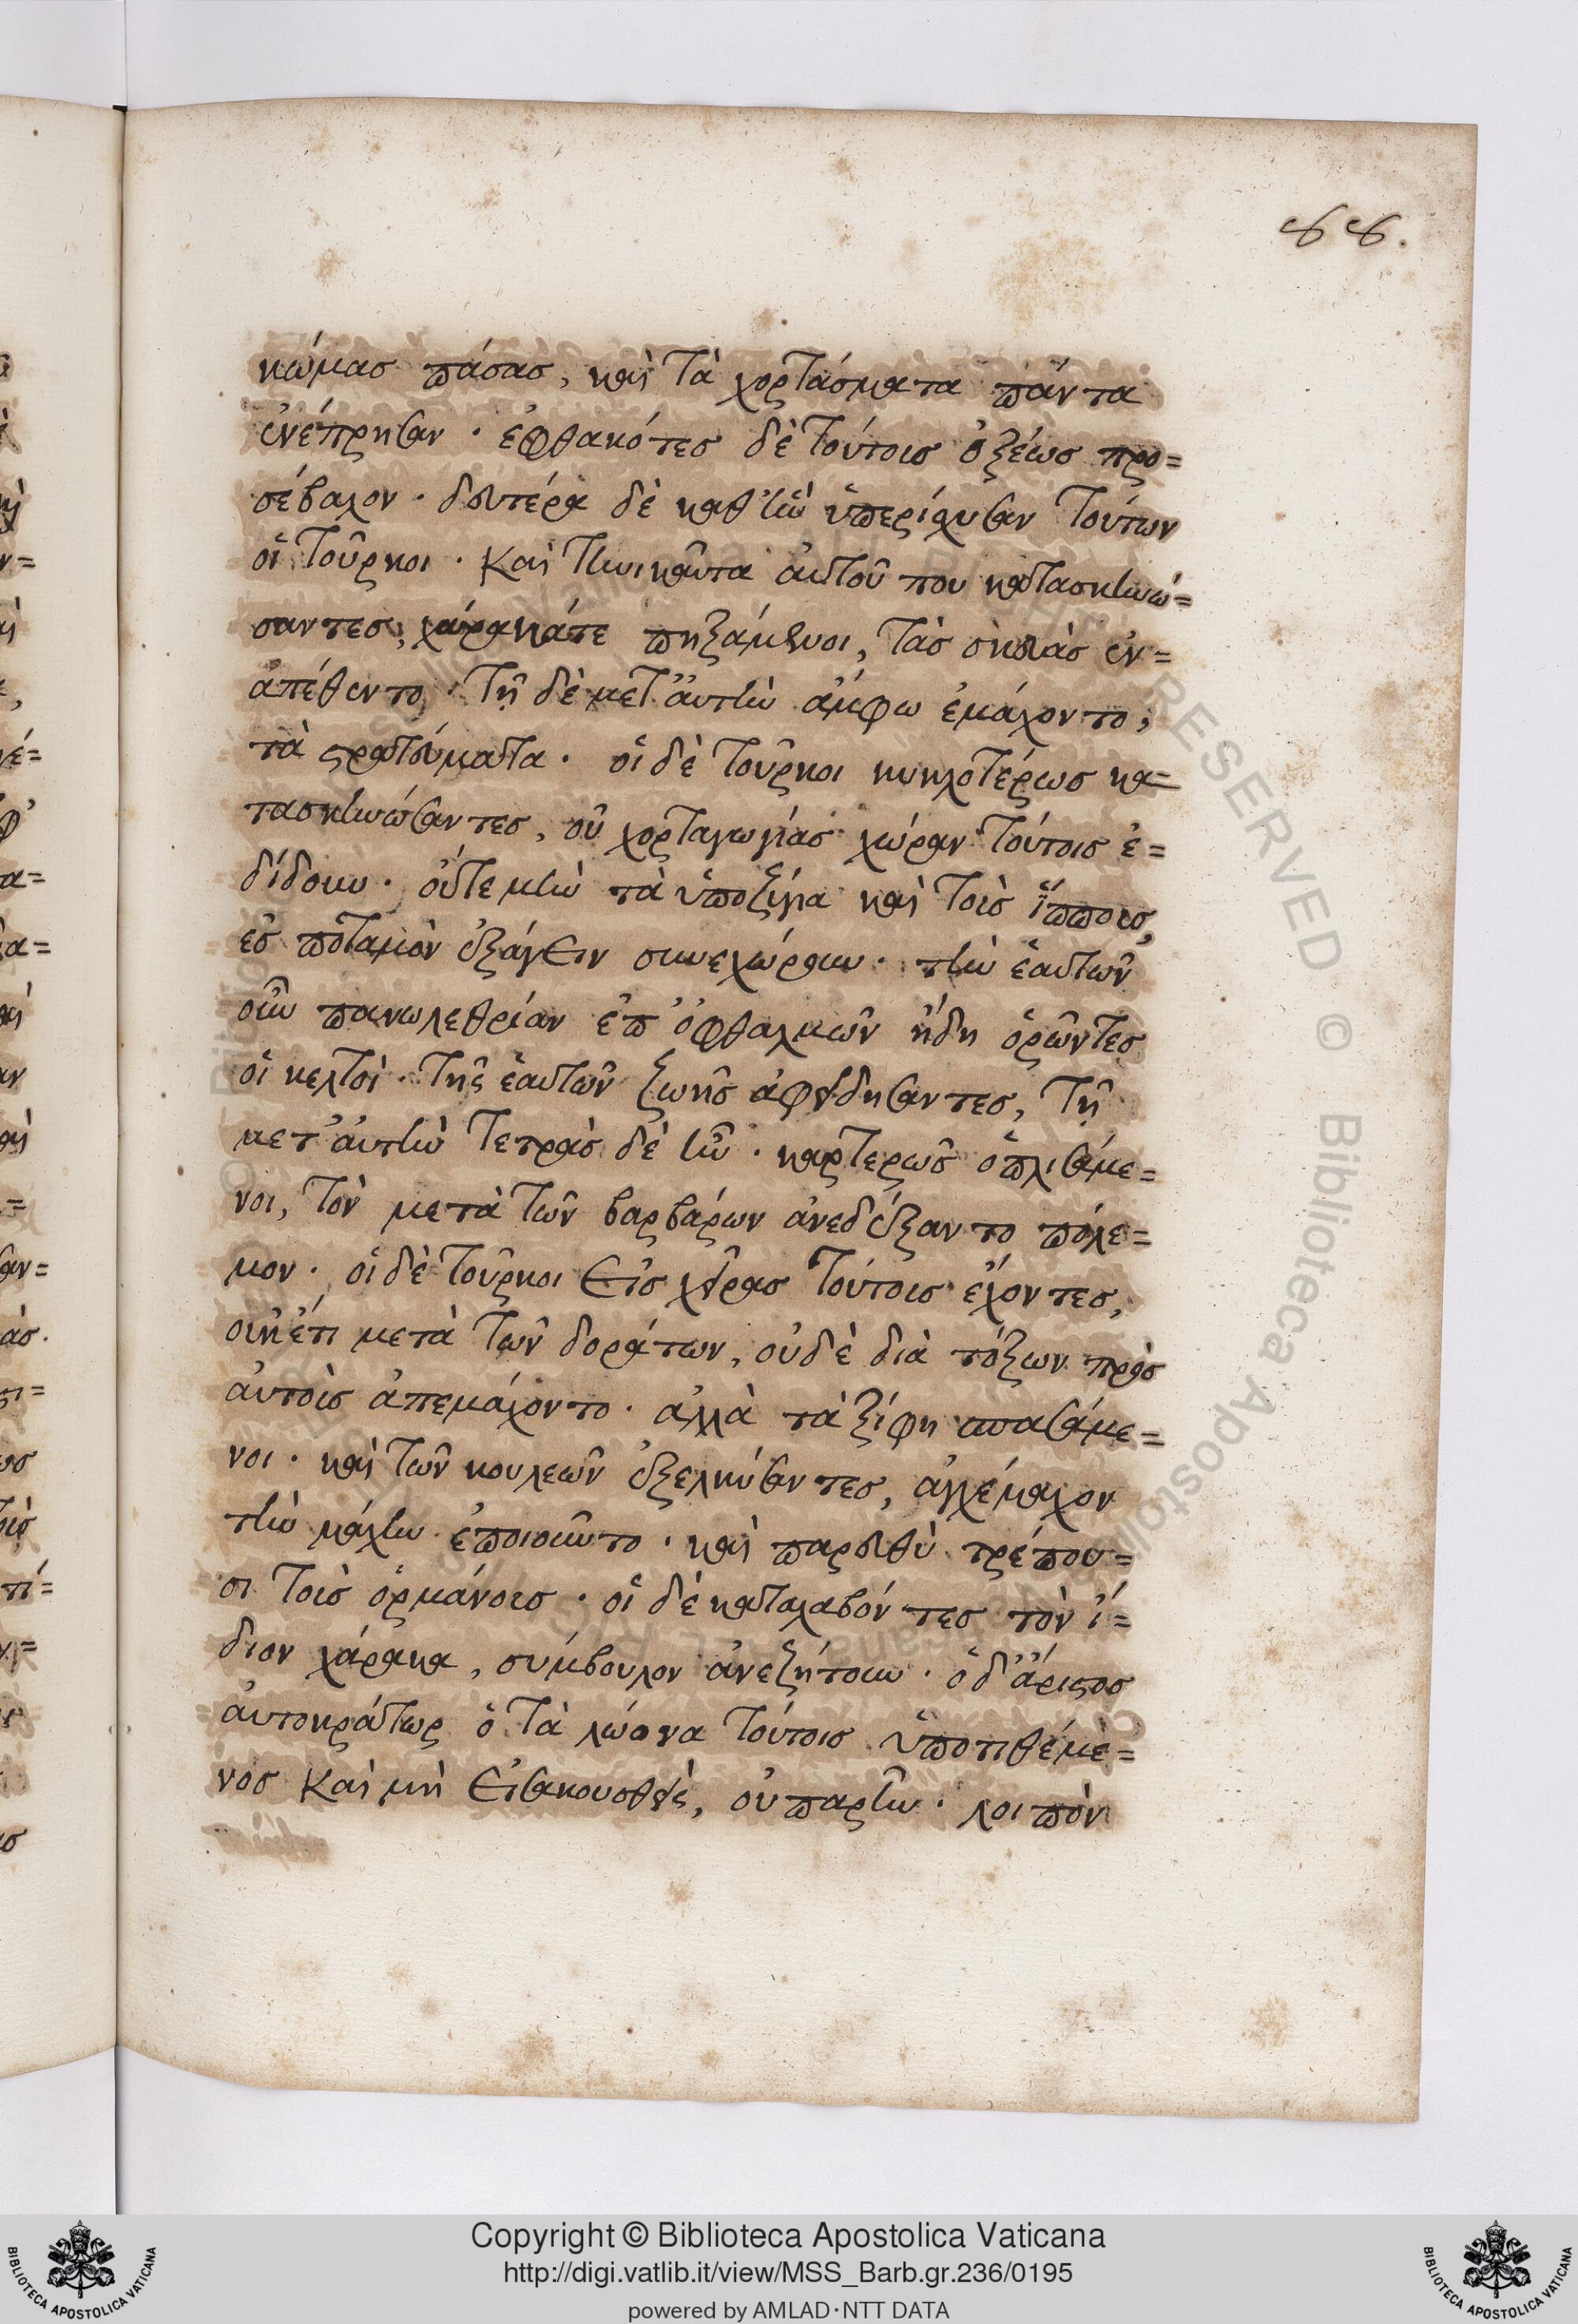 88.
κώμας πάσας, καὶ τὰ χορτάσματα πάντα
ἐνέπρησαν · ἐφθακότες δὲ τούτοις ὀξέως προ=
σέβαλον · δευτέρα δὲ καθ' ἣν ὑπερίσχυσαν τούτων
οἱ Τοῦρκοι · Καὶ τηνικαῦτα αὐτοῦ που κατασκηνώ=
σαντες, χάρακάτε πηξάμενοι, τὰς σκευὰς ἐν=
απέθεντο · Τῇ δὲ μετ' αὐτὴν ἄμφω ἐμάχοντο,
τὰ στρατεύματα · οἱ δὲ Τοῦρκοι κυκλοτέρως κα=
τασκηνώσαντες, οὐ χορταγωγίας χώραν τούτοις ἐ=
δίδουν · οὔτε μὴν τὰ ὑποζύγια καὶ τοὺς ἵππους,
ἐς ποταμὸν ἐξάγειν συνεχώρουν · τὴν ἑαυτῶν
οὖν πανωλεθρίαν ἐπ' ὀφθαλμῶν ἤδη ὁρῶντες
οἱ κελτοὶ · τῆς ἑαυτῶν ζωῆς ἀφειδήσαντες, τῇ
μετ' αὐτὴν τετρὰς δὲ ἦν · καρτερῶς ὁπλισάμε=
νοι, τὸν μετὰ τῶν βαρβάρων ἀνεδέξαντο πόλε=
μον · οἱ δὲ Τοῦρκοι εἰς χεῖρας τούτοις ἔχοντες,
οὐκέτι μετὰ τῶν δοράτων, οὐδὲ διὰ τόξων πρὸς
αὐτοὺς ἀπεμάχοντο · ἀλλὰ τὰ ξίφη σπασάμε=
νοι · καὶ τῶν κουλεῶν ἐξελκύσαντες, ἀγχέμαχον
τὴν μάχην ἐποιοῦντο · καὶ παρευθὺ τρέπου=
σι τοὺς ὁρμάνους · οἱ δὲ καταλαβόντες τὸν ἴ=
διον χάρακα, σύμβουλον ἀνεζήτουν · ὁ δ' ἄριστος
αὐτοκράτωρ ὁ τὰ λώονα τούτοις ὑποτιθέμε=
νος καὶ μὴ εἰσακουσθεὶς, οὐ παρῆν · λοιπὸν
Copyright © Biblioteca Apostolica Vaticana
http://digi.vatlib.it/view/MSS_Barb.gr.236/0195
powered by AMLAD·NTT DATA
BIBLIOTECA APOSTOLICA VATICANA
BIBLIOTECA APOSTOLICA VATICANA